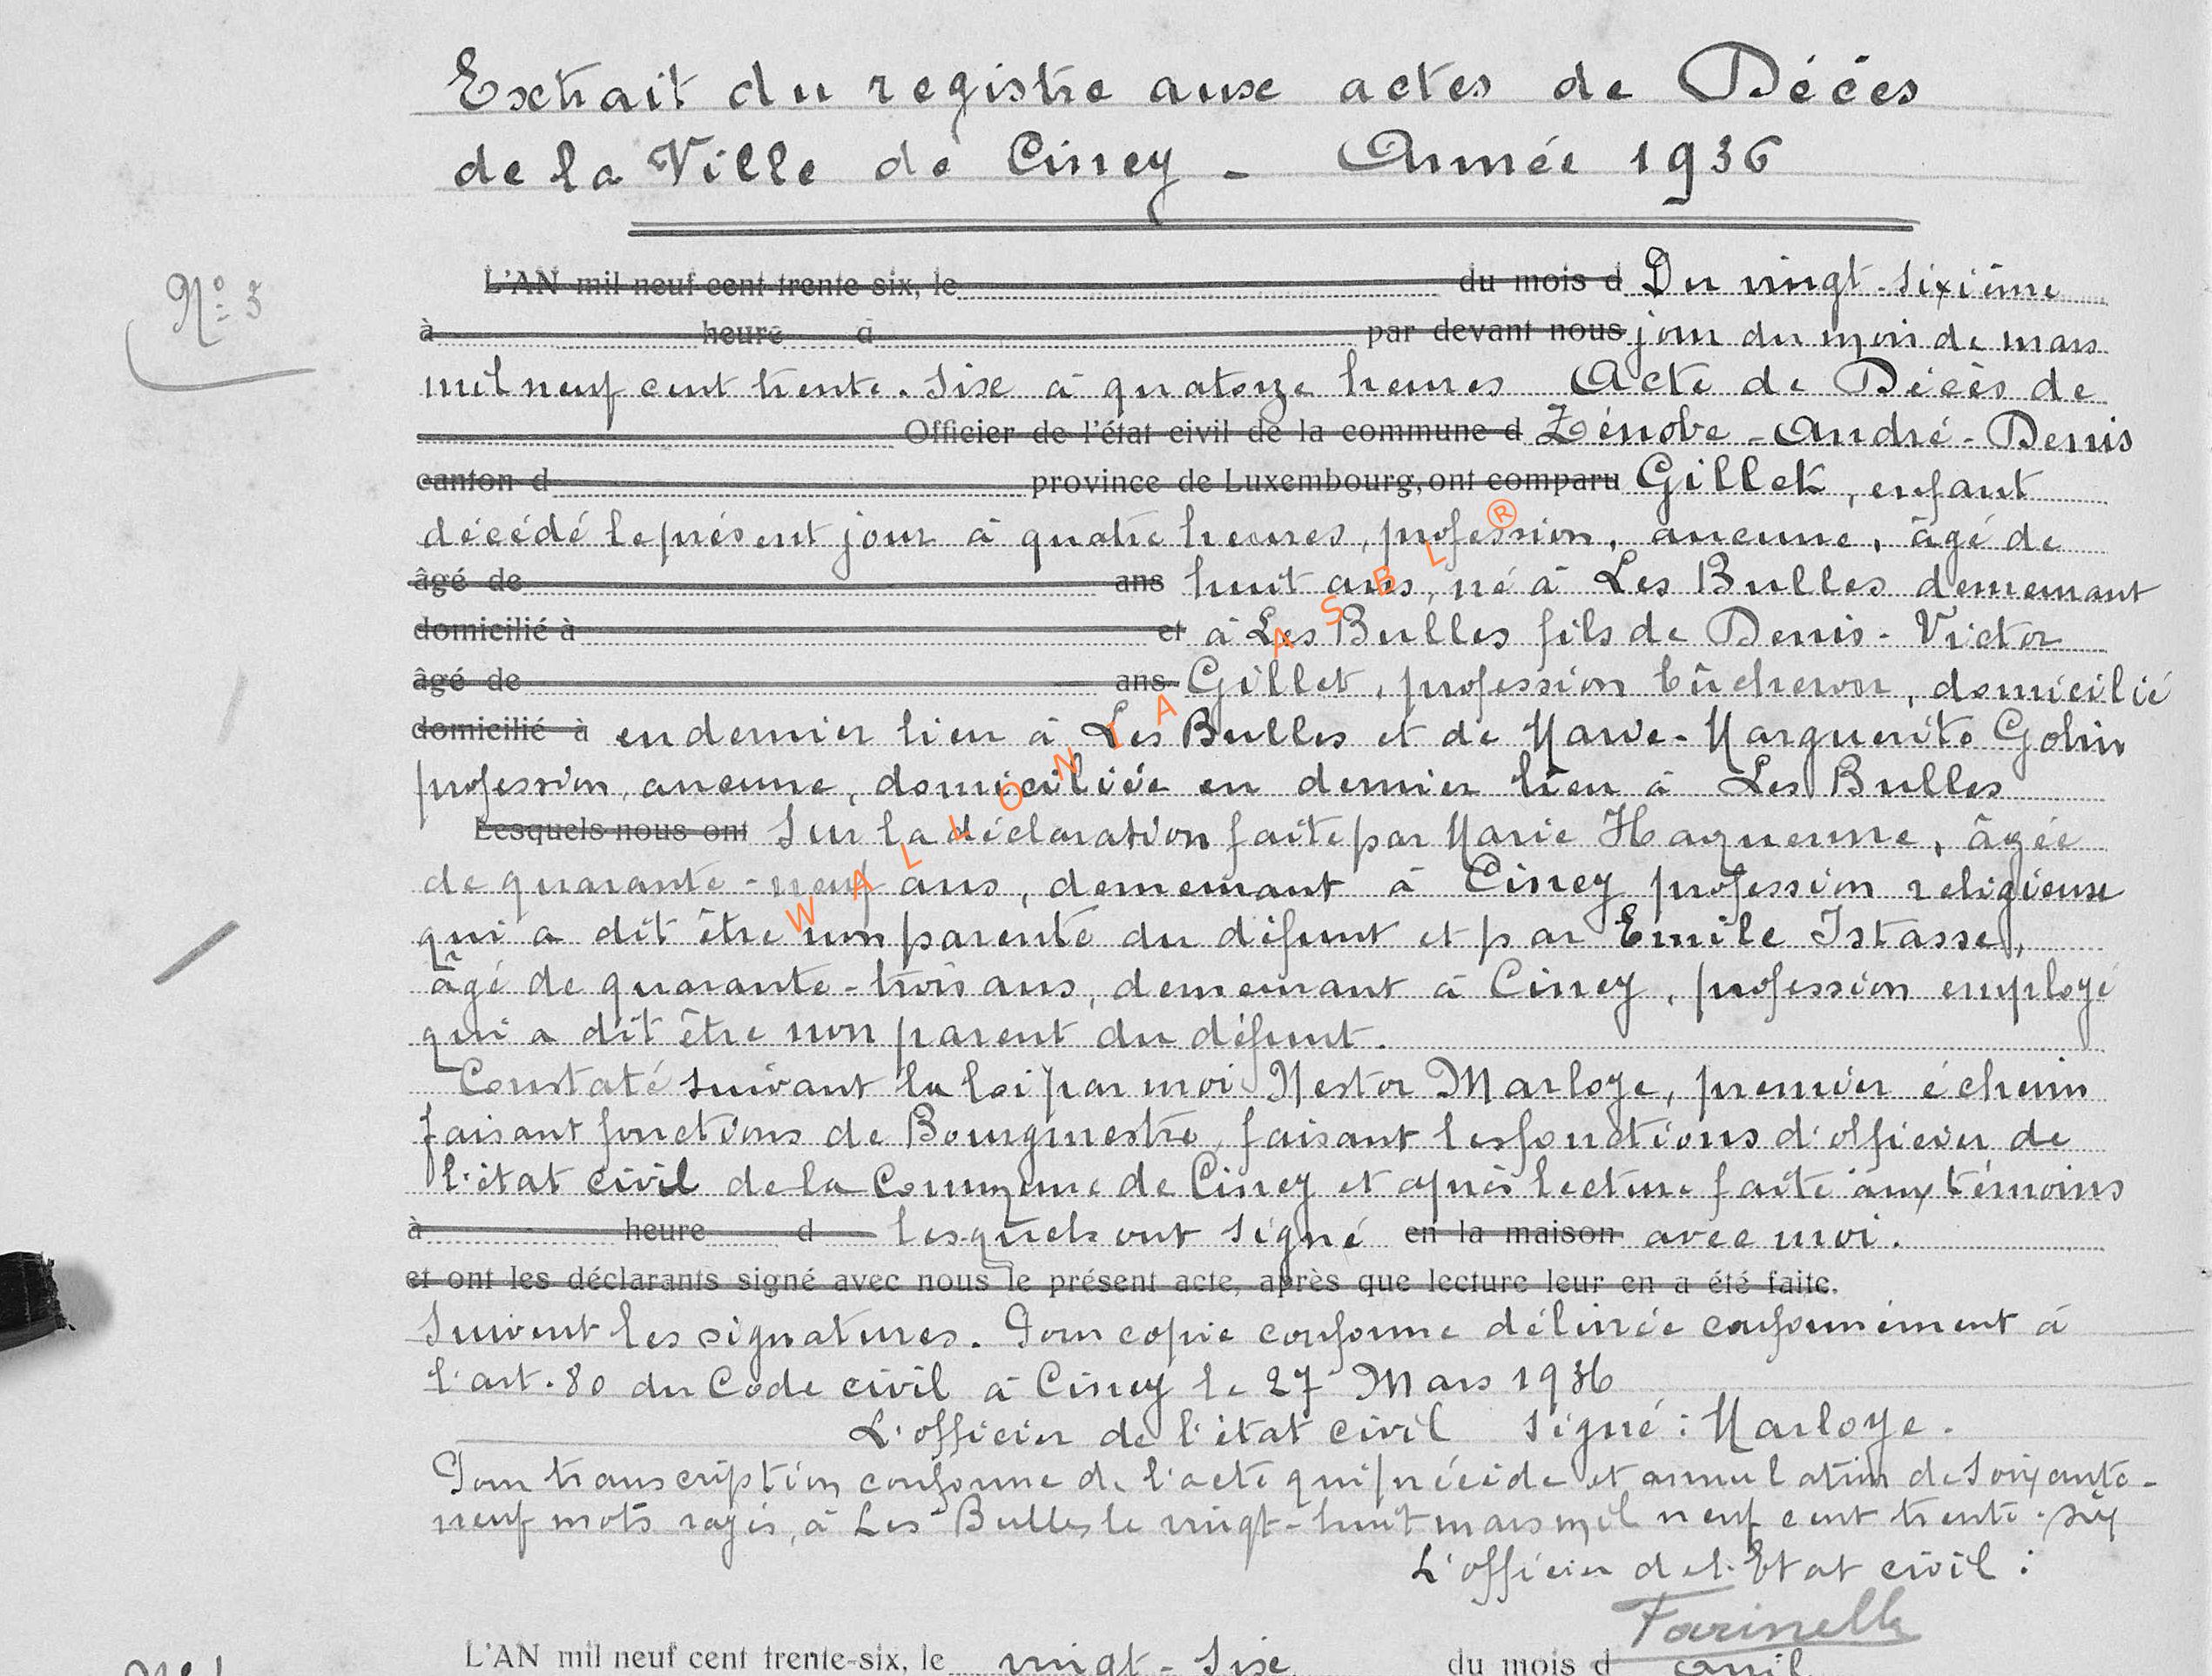 Extrait du registre aux actes de Décès
de la Ville de Ciney - Année 1936
N° 3
L'AN mil neuf cent trente-six, le du mois d Du vingt-sixième
à heure d par devant nous jour du mois de mars
mil neuf cent trente-six à quatorze heures Acte de Décès de
Officier de l'état civil de la commune d Zénobe-André-Denis
canton d province de Luxembourg, ont comparu Gillet, enfant
décédé le présent jour à quatre heures, profession, aucune, âgé de
âgé de ans huit ans, né à Les Bulles demeurant
domicilié à et à Les Bulles fils de Denis-Victor
âgé de ans Gillet, profession bûcheron, domicilié
domicilié à en dernier lieu à Les Bulles et de Marie-Marguerite Golin
profession, aucune, domiciliée en dernier lieu à Les Bulles
Lesquels nous ont Sur la déclaration faite par Marie Haquenne, âgée
de quarante-neuf ans, demeurant à Ciney profession religieuse
qui a dit être non parente du défunt et par Emile Istasse,
âgé de quarante-trois ans, demeurant à Ciney, profession employé
qui a dit être non parent du défunt.
Constaté suivant la loi par moi Nestor Marloye, premier échevin
faisant fonctions de Bourgmestre, faisant les fonctions d'officier de
l'état civil de la Commune de Ciney et après lecture faite aux témoins
à heure d lesquels ont signé en la maison avec moi.
et ont les déclarants signé avec nous le présent acte, après que lecture leur en a été faite.
Suivent les signatures. Pour copie conforme délivrée conformément à
l'art. 80 du Code civil à Ciney le 27 Mars 1936
L'officier de l'état civil signé : Marloye.
Pour transcription conforme de l'acte qui précède et annulation de soixante-
neuf mots rayés, à Les Bulles le vingt-huit mars mil neuf cent trente-six
L'officier de l'Etat civil :
Farinelle
L'AN mil neuf cent trente-six, le vingt-six du mois d avril
WALLONIA ASBL ®